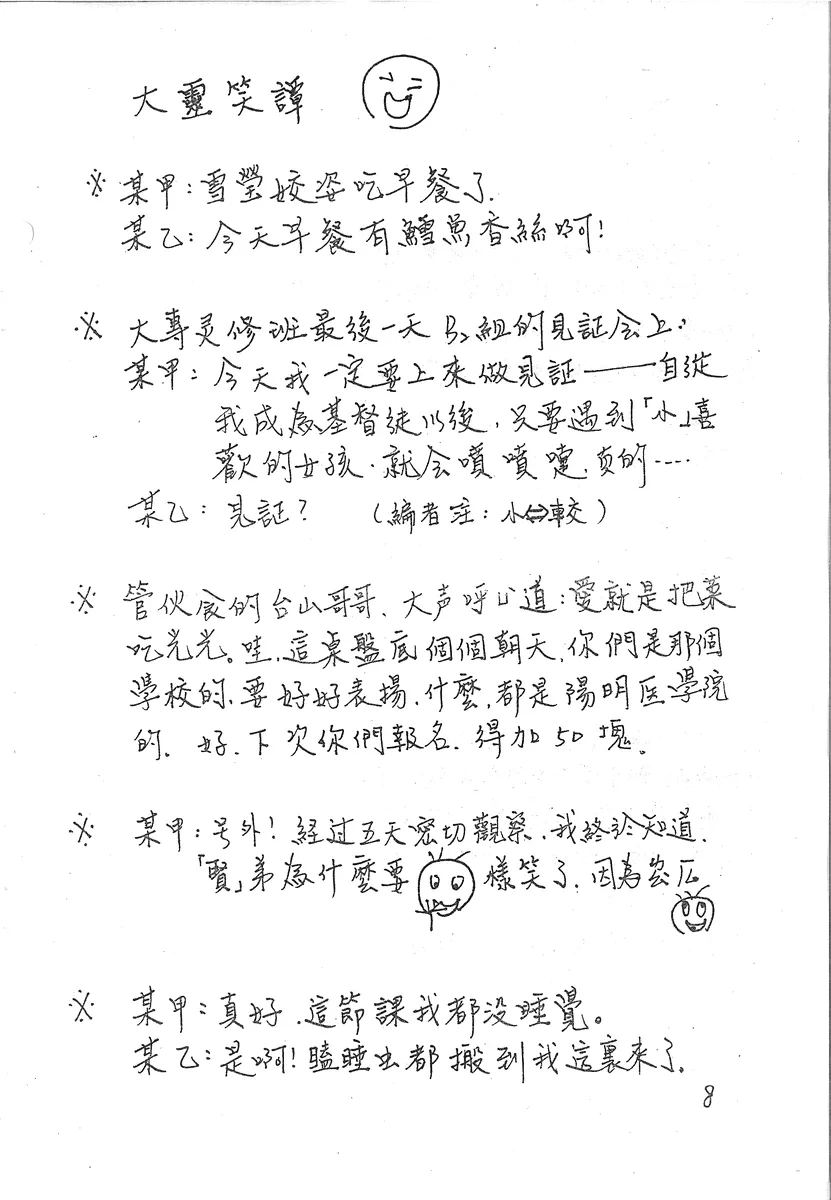 大靈笑譚
※ 某甲：雪瑩姣姿吃早餐了.
某乙：今天早餐有鱈魚香絲啊！
※ 大專灵修班最後一天 B₂組的見証会上：
某甲：今天我一定要上來做見証———自從
我成為基督徒以後，只要遇到「小」喜
歡的女孩．就会噴噴嚏．真的……
某乙：見証？ （編者注：小⇔較）
※ 管伙食的台山哥哥、大声呼吁道：愛就是把菜
吃光光。哇，這桌盤底個個朝天，你們是那個
學校的，要好好表揚，什麼，都是陽明医學院
的．好．下次你們報名．得加50塊。
※ 某甲：号外！經过五天密切觀察，我終於知道．
「賢」弟為什麼要 樣笑了．因為
※ 某甲：真好．這節課我都没睡覺。
某乙：是啊！瞌睡虫都搬到我這裏來了．
8